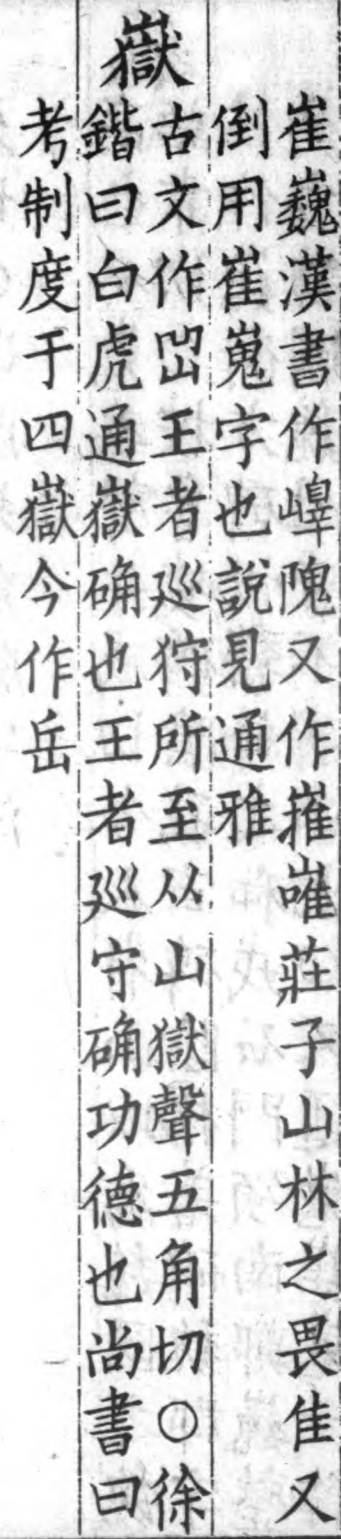 崔巍漢書作嶵隗又作㠑嗺莊子山林之畏隹又
倒用崔嵬字也說見通雅
嶽
古文作𡶳王者巡狩所至从山獄聲五角切○徐
鍇曰白虎通嶽确也王者巡守确功德也尚書曰
考制度于四嶽今作岳